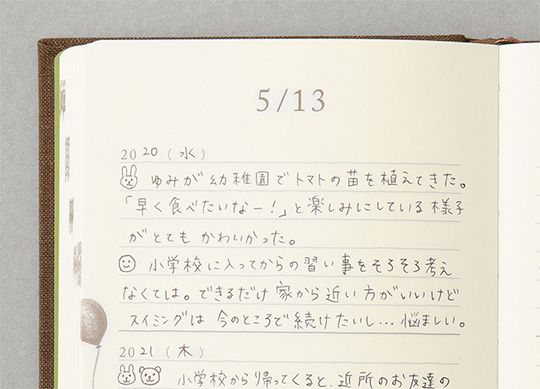 5/13
2020 (水)
ゆみが幼稚園でトマトの苗を植えてきた。
「早く食べたいなー!」と楽しみにしている様子
がとてもかわいかった。
小学校に入ってからの習い事をそろそろ考え
なくては。できるだけ家から近い方がいいけど
スイミングは今のところで続けたいし…悩ましい。
2021 (木)
小学校から帰ってくると、近所のお友達の